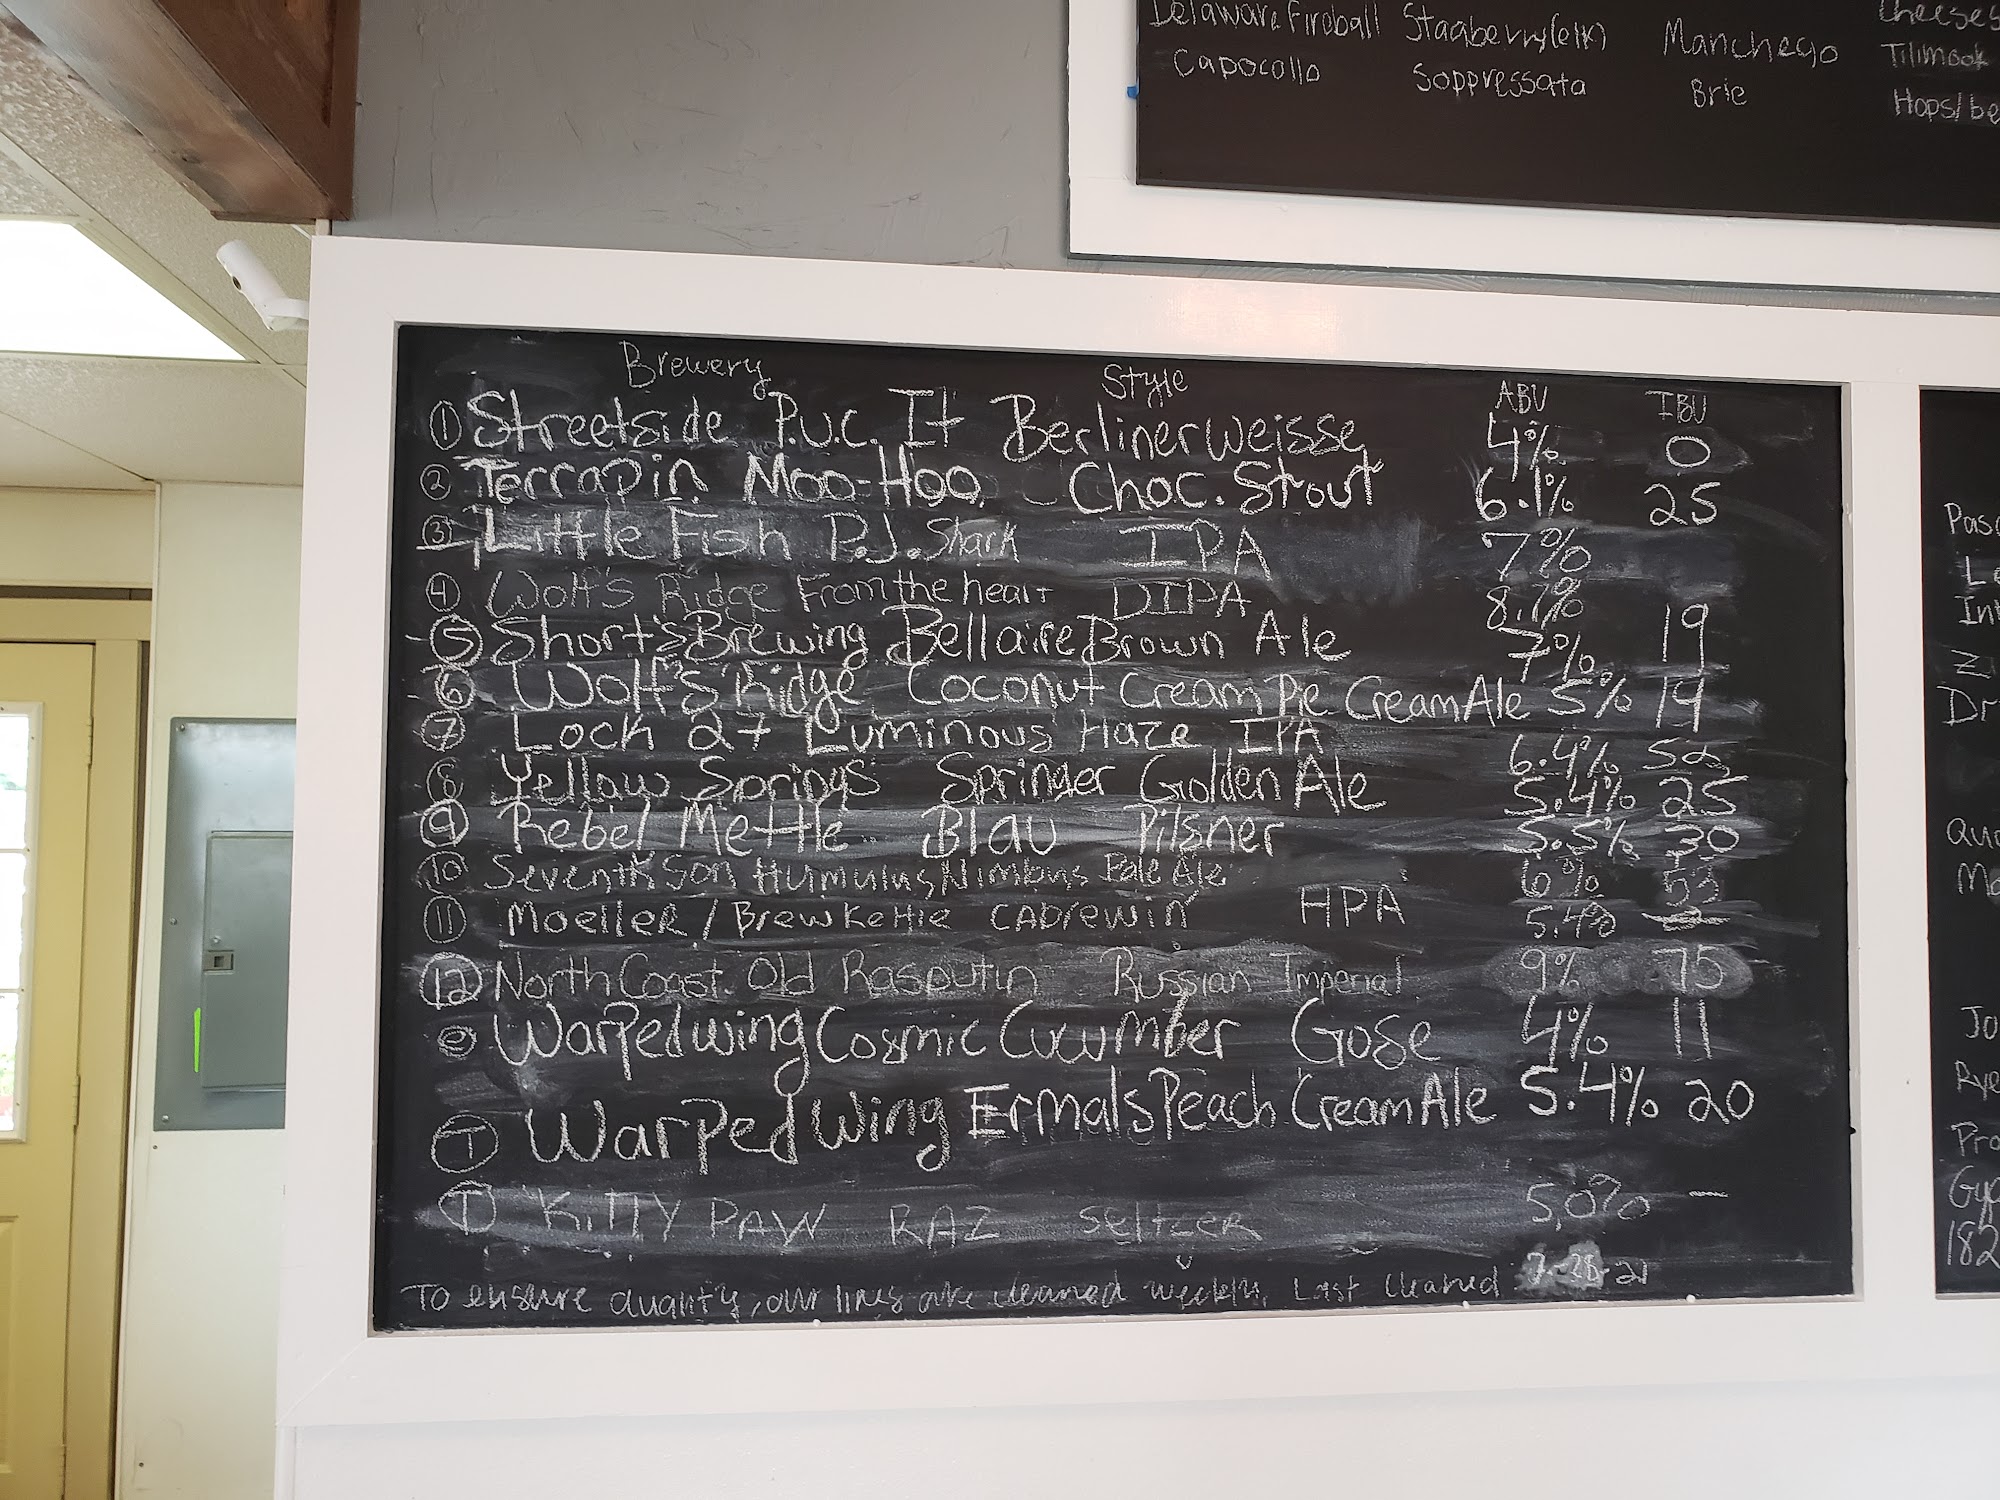 Delaware Fireball Stagberry(elk) Manchego Cheeses
Capocollo Soppressata Brie Tilimook
Hops/be
Brewery Style ABV IBU
① Streetside P.U.C. It Berlinerweisse 4% 0
② Terrapin Moo-Hoo - Choc. Stout 6.1% 25
③ Little Fish P.J. Shark IPA 7%
④ Wolf's Ridge From the heart DIPA 8.1%
⑤ Short's Brewing Bellaire Brown Ale 7% 19
⑥ Wolf's Ridge Coconut Cream Pie Cream Ale 5% 19
⑦ Lock 27 Luminous Haze IPA 6.4% 52
⑧ Yellow Springs Springer Golden Ale 5.4% 25
⑨ Rebel Mettle Blau Pilsner 5.5% 30
⑩ Seventh Son Humulus Nimbus Pale Ale 6% 53
⑪ Moeller / Brew Kettle CABrewin' HPA 5.4%
⑫ North Coast Old Rasputin Russian Imperial 9% 75
Warped Wing Cosmic Cucumber Gose 4% 11
Ⓣ Warped Wing Ermals Peach Cream Ale 5.4% 20
Ⓣ KITTY PAW RAZ SELTZER 5.0% -
To ensure quality, our lines are cleaned weekly. Last cleaned 7-28-21
Zi
Dr
Qua
Mo
Jo
Rye
Pro
182